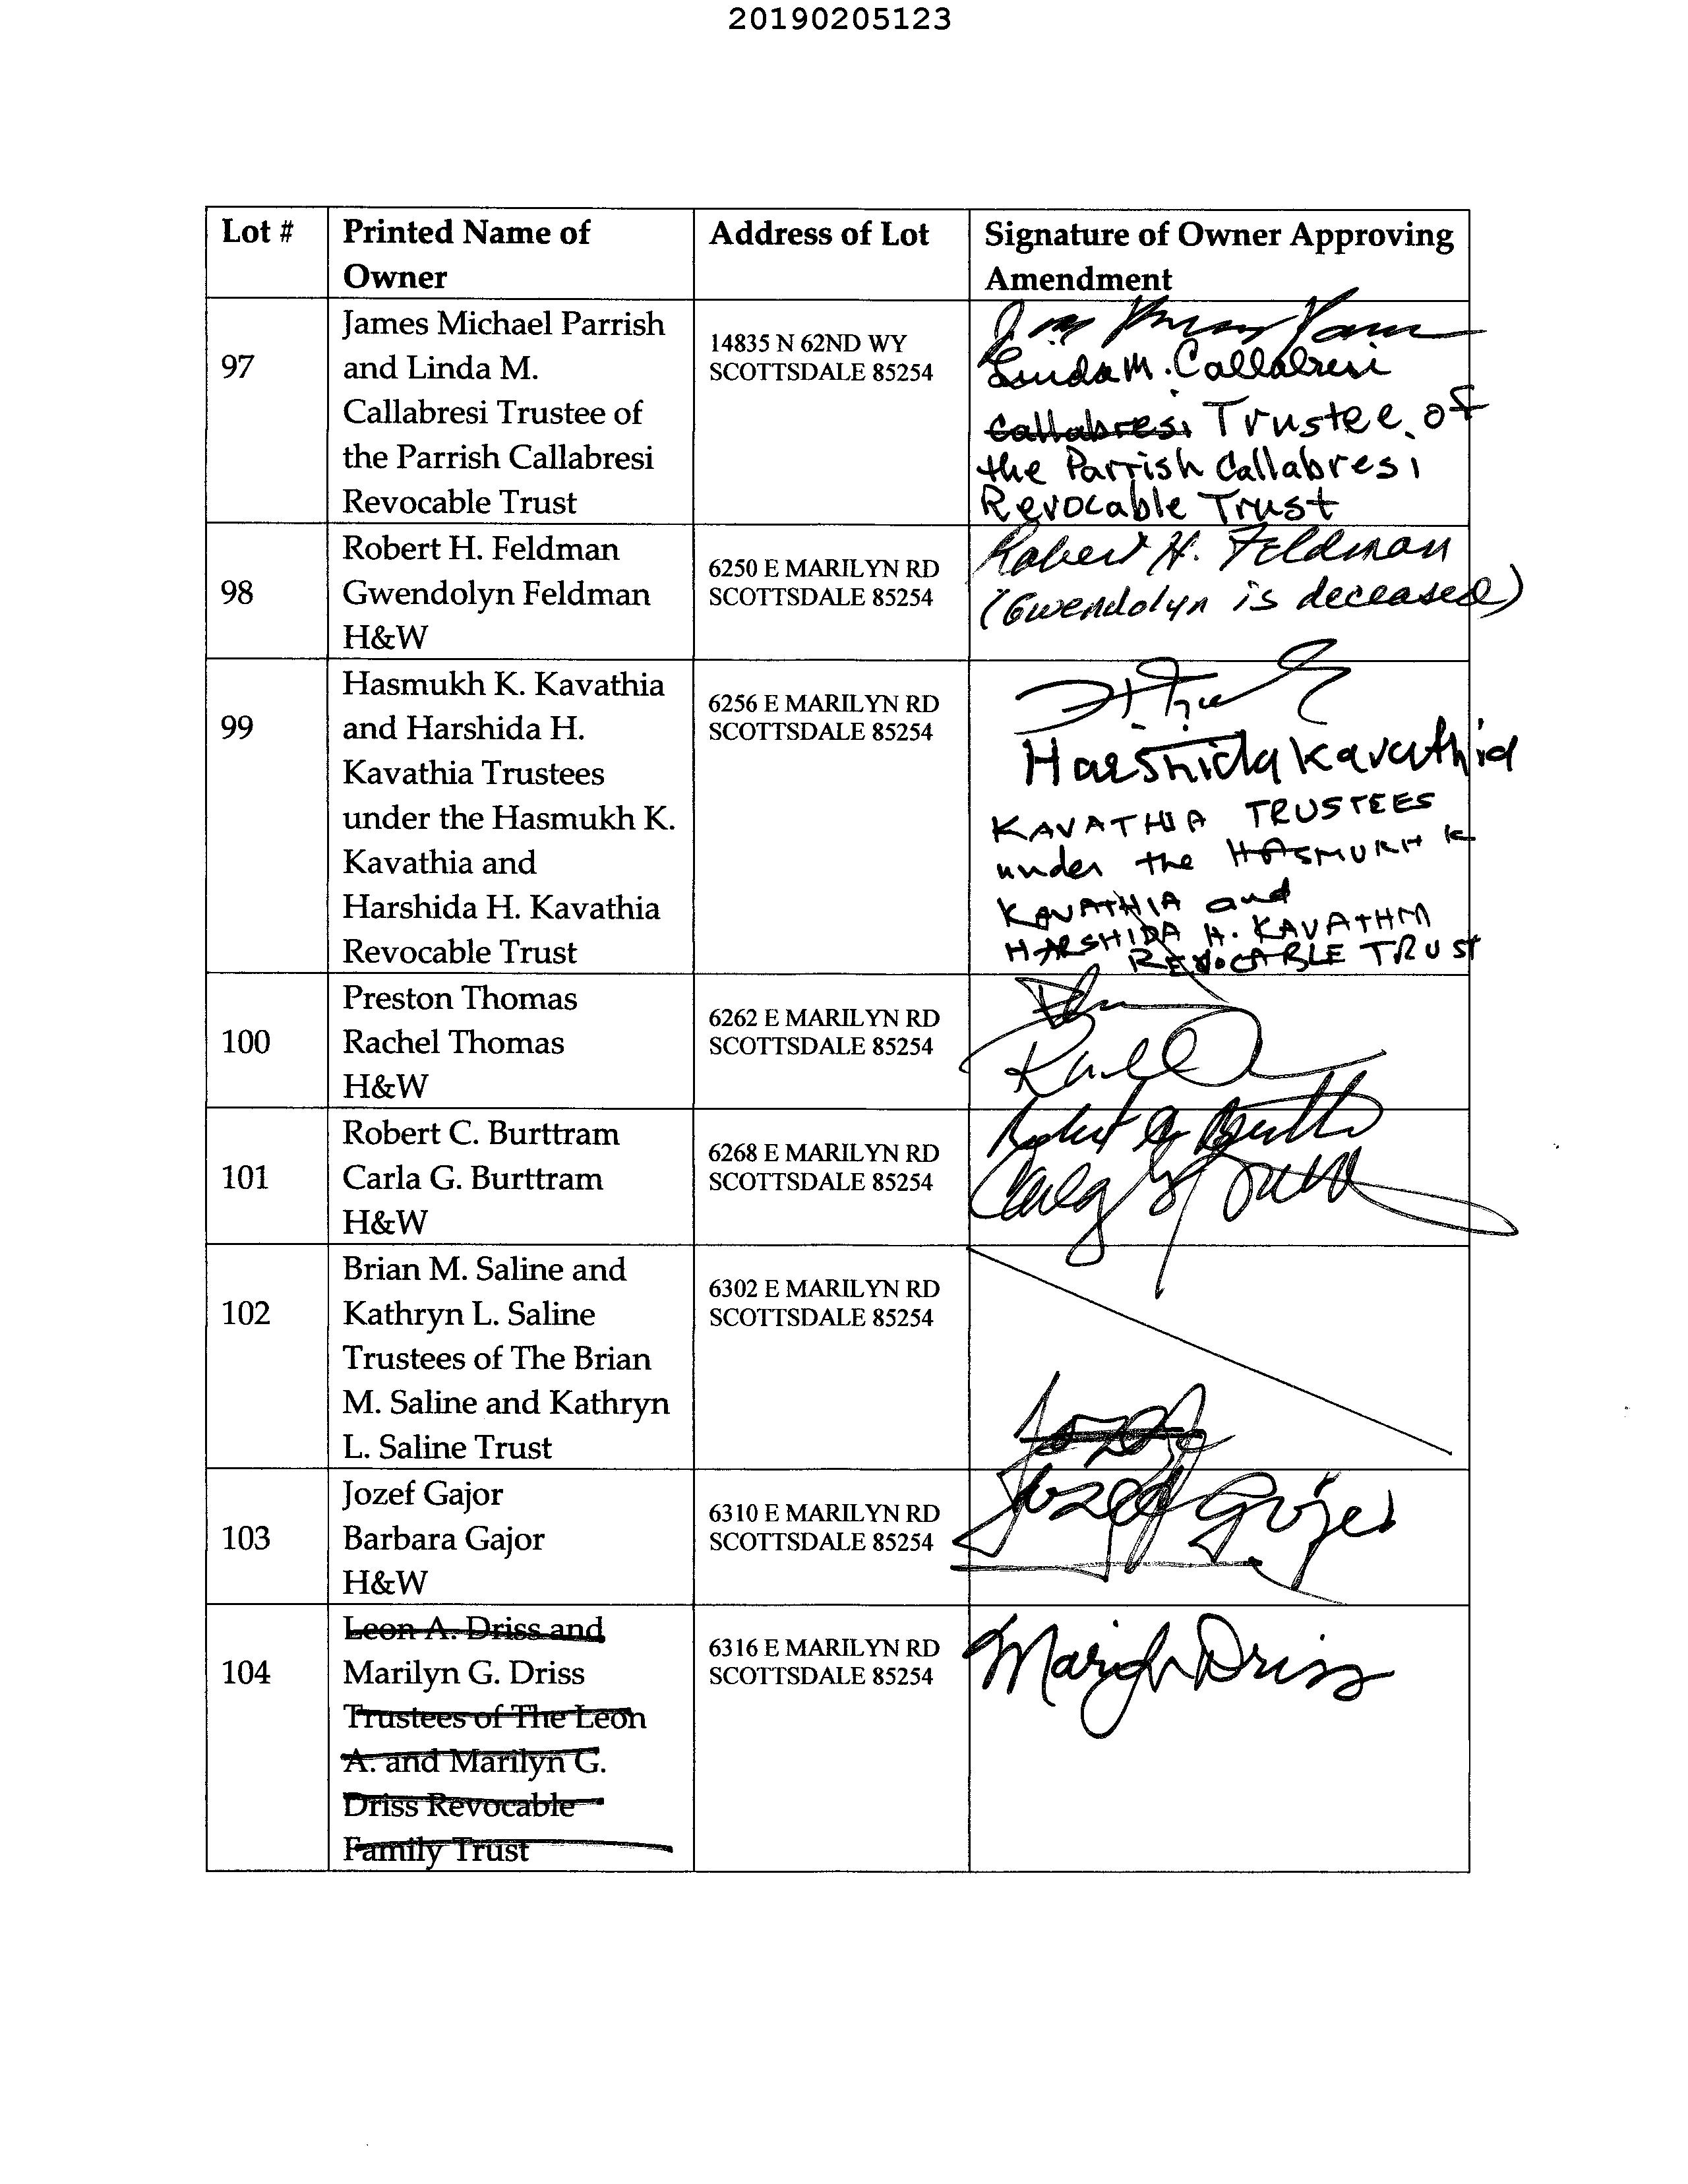 20190205123
Lot #
Printed Name of
Owner
Address of Lot
Signature of Owner Approving
Amendment
97
James Michael Parrish
and Linda M.
Callabresi Trustee of
the Parrish Callabresi
Revocable Trust
14835 N 62ND WY
SCOTTSDALE 85254
Linda M. Callabresi
Callabresi Trustee of
the Parrish Callabresi
Revocable Trust
98
Robert H. Feldman
Gwendolyn Feldman
H&W
6250 E MARILYN RD
SCOTTSDALE 85254
Robert H. Feldman
(Gwendolyn is deceased)
99
Hasmukh K. Kavathia
and Harshida H.
Kavathia Trustees
under the Hasmukh K.
Kavathia and
Harshida H. Kavathia
Revocable Trust
6256 E MARILYN RD
SCOTTSDALE 85254
Harshida Kavathia
KAVATHIA TRUSTEES
under the HASMUKH K
KAVATHIA and
HARSHIDA H. KAVATHIA
REVOCABLE TRUST
100
Preston Thomas
Rachel Thomas
H&W
6262 E MARILYN RD
SCOTTSDALE 85254
101
Robert C. Burttram
Carla G. Burttram
H&W
6268 E MARILYN RD
SCOTTSDALE 85254
102
Brian M. Saline and
Kathryn L. Saline
Trustees of The Brian
M. Saline and Kathryn
L. Saline Trust
6302 E MARILYN RD
SCOTTSDALE 85254
Jozef
103
Jozef Gajor
Barbara Gajor
H&W
6310 E MARILYN RD
SCOTTSDALE 85254
Jozef Gajor
104
Leon A. Driss and
Marilyn G. Driss
Trustees of The Leon
A. and Marilyn G.
Driss Revocable
Family Trust
6316 E MARILYN RD
SCOTTSDALE 85254
Driss